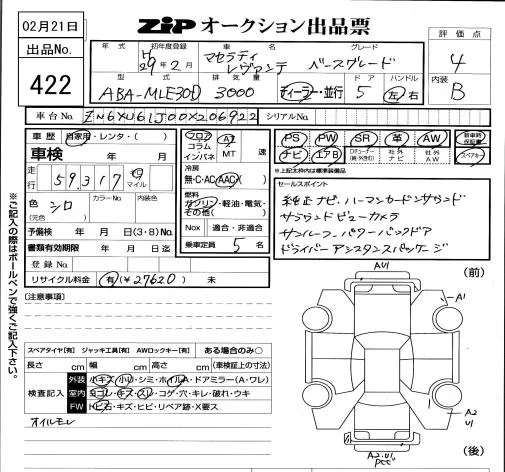 02月21日
ZIP オークション出品票
出品No.
422
年式 初年度登録 車名 グレード
H29年2月 マセラティ レヴァンテ ベースグレード
型式 排気量 ドア ハンドル
ABA-MLE30D 3000 ディーラー・並行 5 左 右
評価点
4
内装
B
車台No. ZN6XU61J00X206922 シリアルNo.
車歴 自家用・レンタ・( )
車検 年 月
走行 59,317 km マイル
色 シロ
(元色) カラーNo. 内装色
予備検 年 月 日(3・8)No.
書類有効期限 年 月 日迄
登録No.
リサイクル料金 有(¥27620) 未
フロア
コラム
インパネ
AT
MT 速
冷房
無・C・AC(AAC)
燃料
ガソリン・軽油・電気・
その他( )
Nox 適合・非適合
乗車定員 5 名
PS PW SR 革 AW
ナビ エアB
社外ナビ 社外AW
新車時保証書
スペアキー
*上記太枠内は標準装備品
セールスポイント
純正ナビ、ハーマンカードンサウンド
サラウンドビューカメラ
サンルーフ、パワーバックドア
ドライバーアシスタンスパッケージ
※ご記入の際はボールペンで強くご記入下さい。
(注意事項)
スペアタイヤ[有] ジャッキ工具[有] AWロックキー[有] ある場合のみ○
長さ cm 幅 cm 高さ cm (車検証上の寸法)
検査記入
外装 小キズ・小凹・シミ・ホイルA・ドアミラー(A・ワレ)
室内 ヨゴレ・キズ・スレ・コゲ・穴・キレ・破れ・ウキ
FW トビ石・キズ・ヒビ・リペア跡・X要ス
オイルモレ
(前)
AU1
A1
A2
U1
A2.U1
(後)